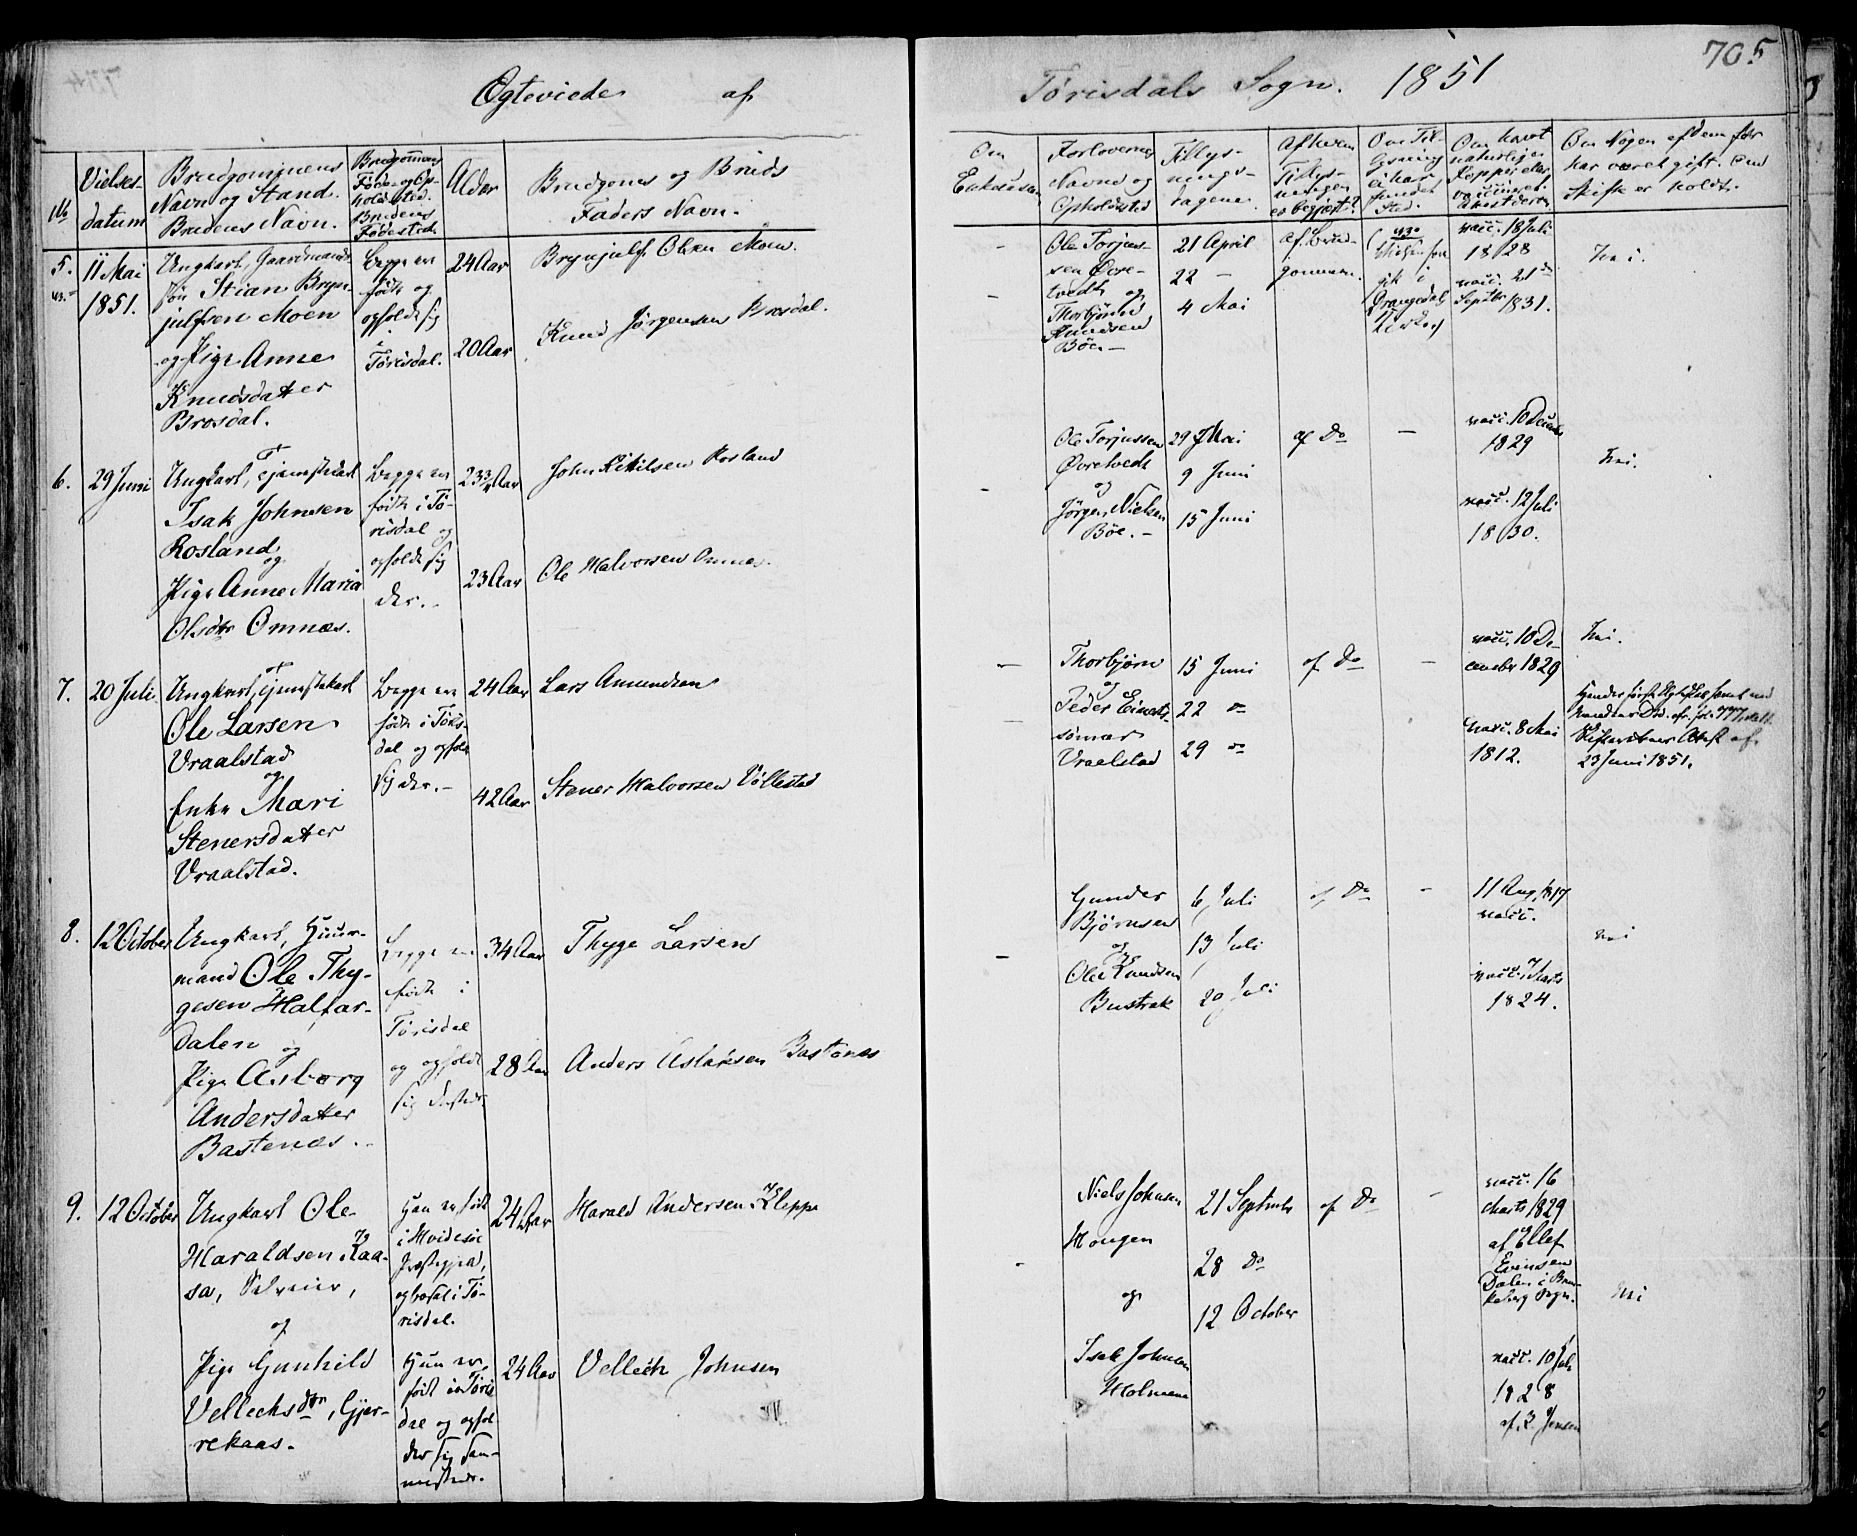 Ægteviede af Tørisdals Sogn. 1851
705
No
Vielses-
datum
Brudgommens
Navn og Stand.
Brudens Navn.
Brudgommens
Føde- og Op-
holdssted.
Brudens
Fødested.
Alder
Brudgoms og Bruds
Faders Navn.
Om
Forlovernes
Navne og
Opholdssted
Tillys-
nings-
dagene.
Af hvem
Tillys-
ningen
er begjært.
Om Til-
lysning
ei har
fundet
Sted.
Om havt
naturlige
Kopper eller
vaccineret.
Om Nogen af dem før
har været gift. Om
Skifte er holdt.
5.
11 Mai
1851.
Ungkarl, Gaardmands
søn Stian Bryn-
julfsen Moen
og Pige Anne
Knudsdatter
Brosdal.
Begge ere
født og
opholde sig
i
Tørisdal.
24 Aar
20 Aar
Brynjulf Olsen Moen.
Knud Jørgensen Brosdal.
Ole Torjus-
sen Øvre-
tvedt og
Thorbjørn
Knudsen
Böe. -
21 April
22 -
4 Mai
af Brud-
gommen.
i
Drangedal
Kirke)
vacc. 18 Juli
1828
vacc. 21 de
Septbr 1831.
Nei.
6.
29 Juni
Ungkarl, Tjenestekarl
Isak Johnsen
Rosland
og
Pige Anne Maria
Olsdtr Omnæs.
Begge ere
født i Tø-
risdal og
opholde sig
der. -
23 3/4 Aar
23 Aar
John Kittilsen Rosland
Ole Halvorsen Omnæs.
Ole Torjussen
Øvretvedt
og
Jørgen Nielsen
Böe. -
29 Mai
9 Juni
15 Juni
af Do
-
vacc. 10 Decembr
1829
vacc. 12 Juli
1830.
Nei.
7.
20 Juli
Ungkarl, Tjenestekarl
Ole Larsen
Vraalstad
og
Enke Mari
Stenersdatter
Vraalstad.
Begge ere
født i Tøris-
dal og opholde
sig der. -
24 Aar
42 Aar
Lars Amundsen
Stener Halvorsen Völlestad
Thorbjørn
og
Peder Einerts-
sønner
Vraalstad
15 Juni
22 do
29 do
af Do
-
vacc. 10 De-
cembr 1829
vacc. 8 Mai
1812.
Nei.
Skifterettens Attest af
23 Juni 1851.
8.
12 October
Ungkarl, Huus-
mand Ole Thy-
gesen Halvar-
dalen
og
Pige Asborg
Andersdatter
Bastenæs. -
Begge ere
født i
Tørisdal
og opholde
sig dersteds.
34 Aar
28 Aar
Thyge Larsen
Anders Aslaksen Bastenæs
Gunder
Bjørnsen
og
Ole Knudsen
Bustrak
6 Juli
13 Juli
20 Juli
af Do
-
11 Aug. 1817
vacc.
vacc. 7 Marts
1824.
nei
9.
12 October
Ungkarl Ole
Haraldsen Kaa-
sa,
og
Pige Gunhild
Vellechsdtr, Gjer-
rekaas.
Han er født
i Hvidesøe
Præstegjeld,
og bosat i Tø-
risdal.
Hun er
født i Tøris-
dal og ophol-
der sig sam-
mesteds.
24 Aar
24 Aar
Harald Andersen Kleppe
Vellech Johnsen
Niels Johnsen
Hougen
og
Isak Johnsen
Holmene
21 September
28 Do
12 October
af Do
-
vacc. 16
Marts 1829
af Ellef
Evensen
Dalen i Brun-
keberg Sogn.
vacc. 10 Juli
1828
af Z. Jensen
Nei